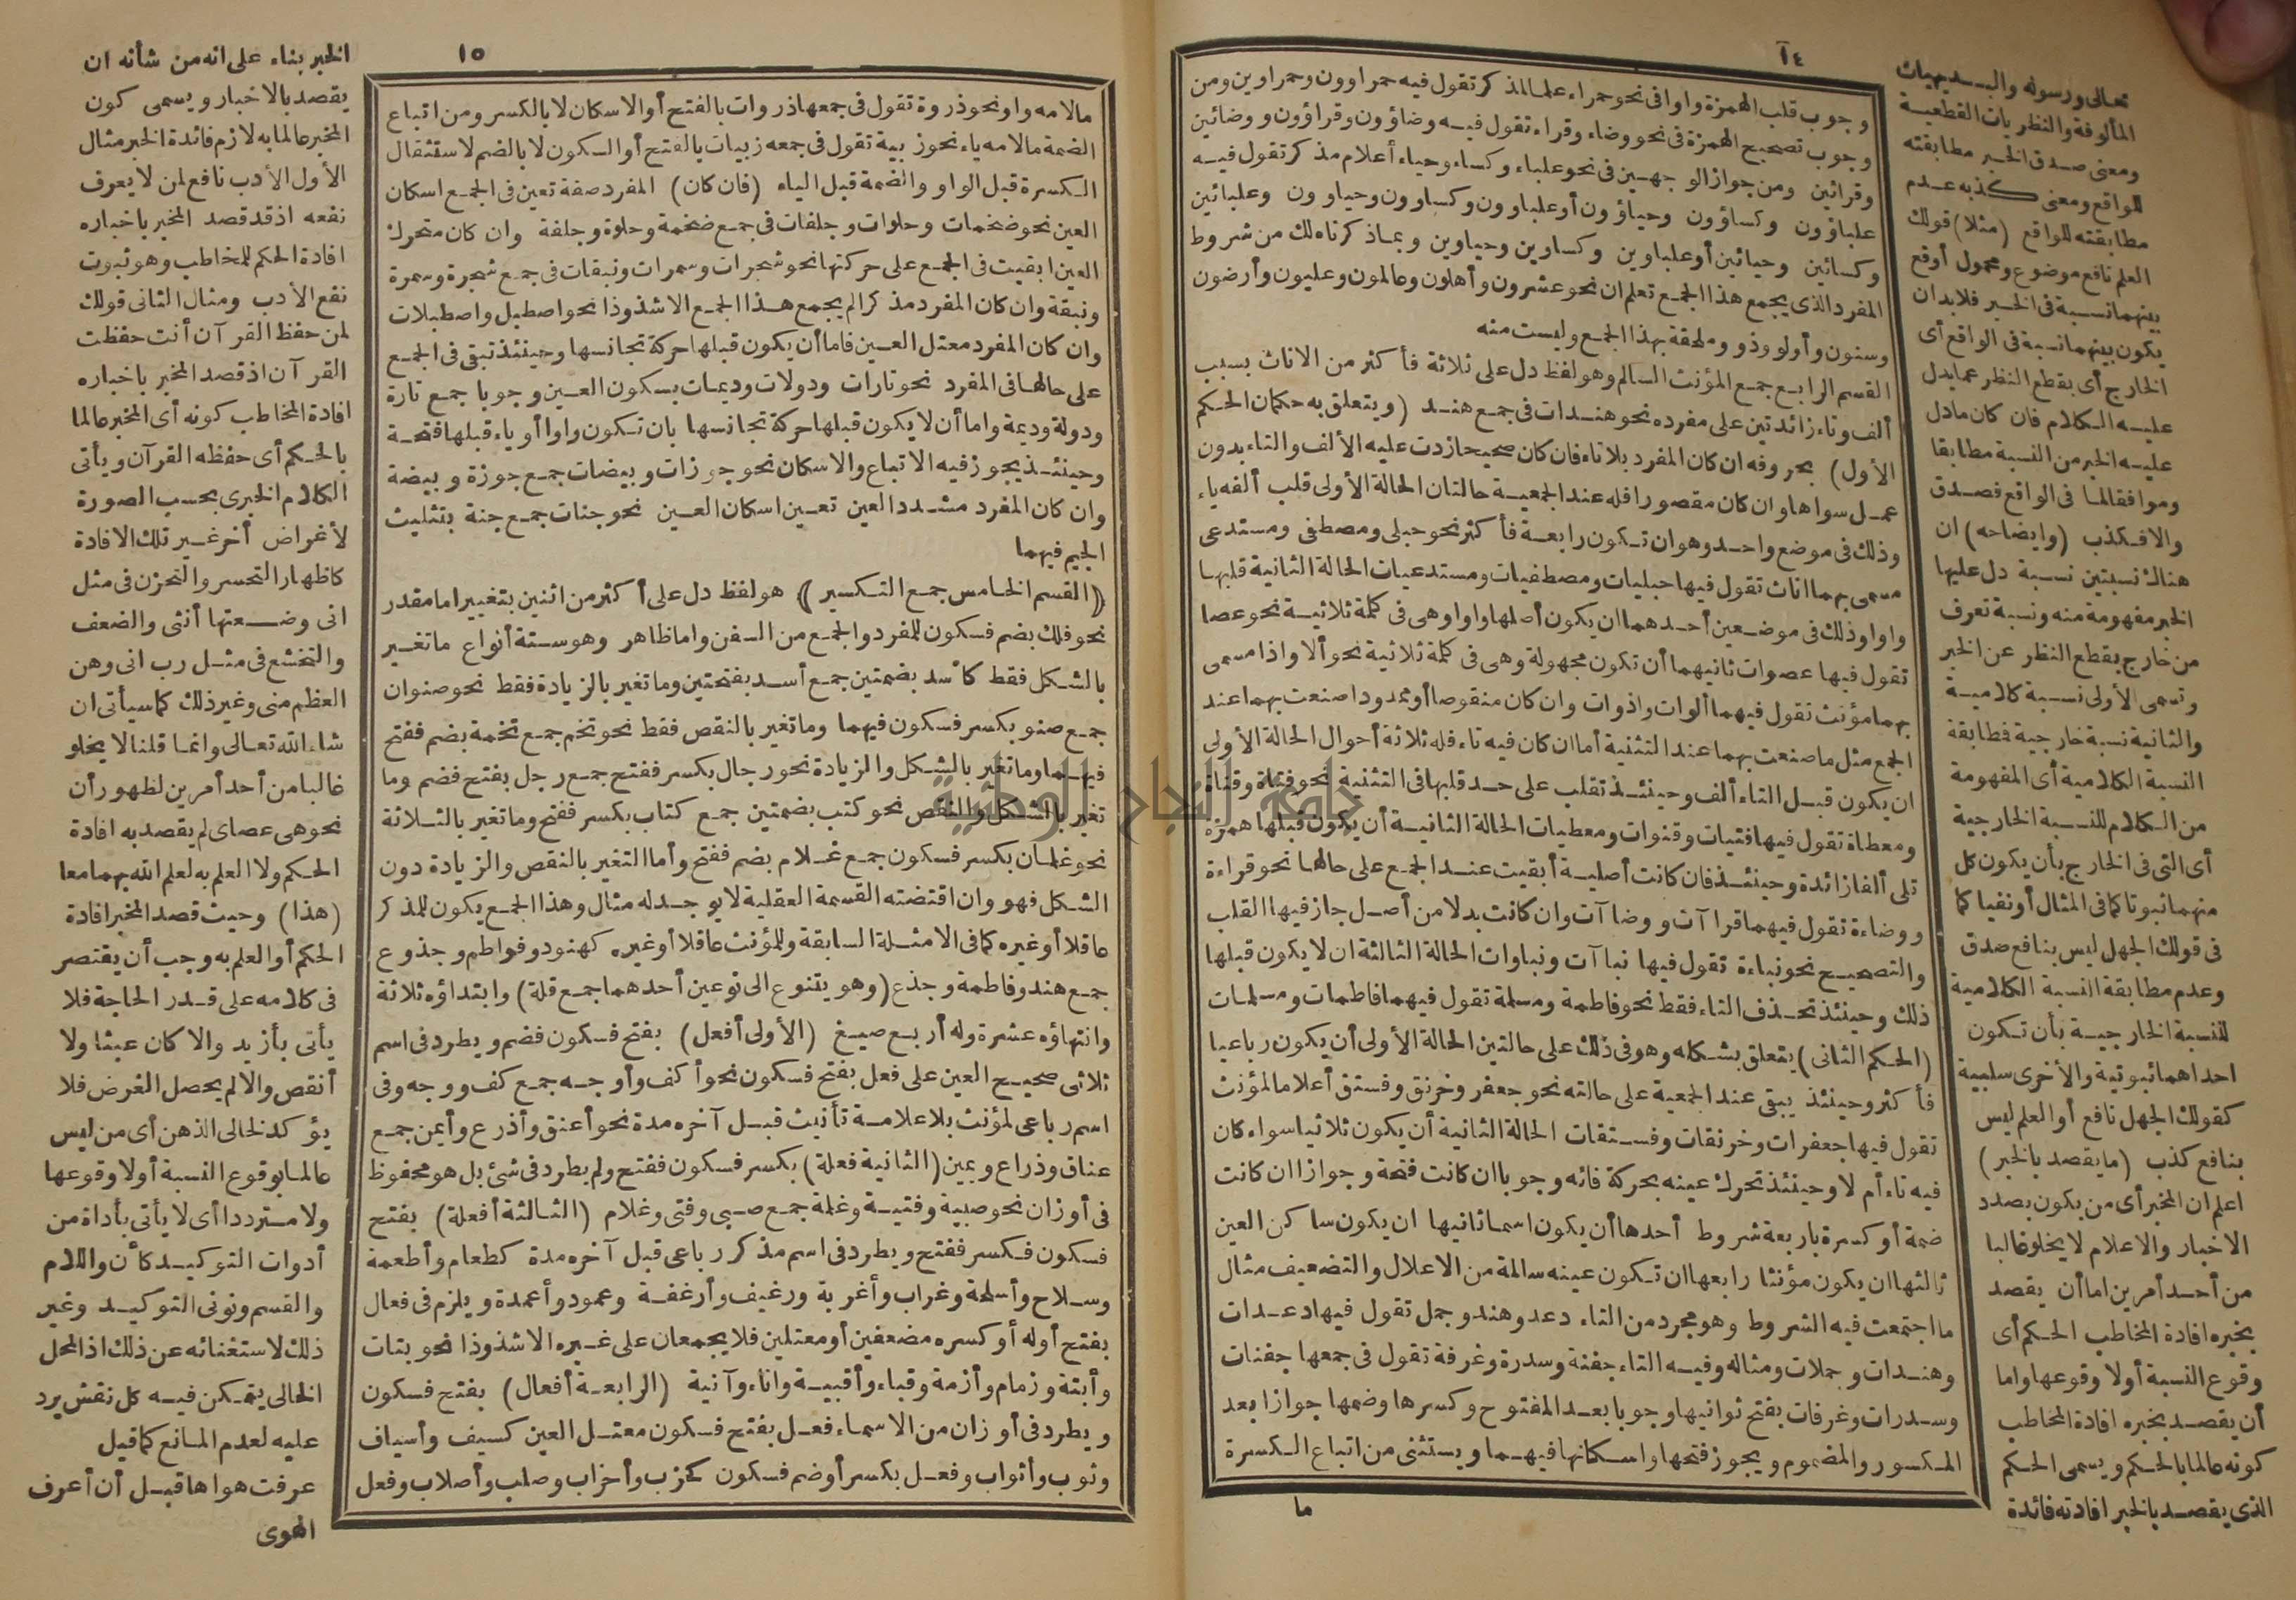 ١٤
وجوب قلب الهمزة واوا في نحو حمراء علما لمذكر تقول فيه حمراوون وحمراوين ومن
وجوب تصحيح الهمزة في نحو وضاء وقراء تقول فيه وضاؤون وقراؤون ووضائين
وقرائين ومن جواز الوجهين في نحو علباء وكساء وحياء أعلام مذكر تقول فيه
علباؤون وكساؤون وحياؤون أو علباوون وكساوون وحياوون وعلبائين
وكسائين وحيائين أو علباوين وكساوين وحياوين وبماذكرناه لك من شروط
المفرد الذي يجمع هذا الجمع تعلم ان نحو عشرون وأهلون وعالمون وعليون وأرضون
وسنون وأولو وذو وملحقة بهذا الجمع وليست منه
القسم الرابع جمع المؤنث السالم وهو لفظ دل على ثلاثة فأكثر من الاناث بسبب
ألف وتاء زائدتين على مفرده نحو هندات في جمع هند (ويتعلق به حكمان الحكم
الأول) بحروفه ان كان المفرد بلاتاء فان كان صحيحا زدت عليه الألف والتاء بدون
عمل سواها وان كان مقصورا فله عند الجمعية حالتان الحالة الأولى قلب ألفه ياء
وذلك في موضع واحد وهو ان تكون رابعة فأكثر نحو حبلى ومصطفى ومستدعى
مسمى بهما اناث تقول فيها حبليات ومصطفيات ومستدعيات الحالة الثانية قلبها
واوا وذلك في موضعين أحدهما ان يكون أصلها واوا وهي في كلمة ثلاثية نحو عصا
تقول فيها عصوات ثانيهما أن تكون مجهولة وهي في كلمة ثلاثية نحو ألا واذا مسمى
بهما مؤنث تقول فيهما ألوات واذوات وان كان منقوصا أو ممدودا صنعت بهما عند
الجمع مثل ما صنعت بهما عند التثنية أما ان كان فيه تاء فله ثلاثة أحوال الحالة الأولى
ان يكون قبل التاء ألف وحينئذ تقلب على حد قلبها في التثنية نحو فتاة وقناة
ومعطاة تقول فيها فتيات وقنوات ومعطيات الحالة الثانية أن يكون قبلها همزة
تلى ألفا زائدة وحينئذ فان كانت أصلية أبقيت عند الجمع على حالها نحو قراءة
ووضاءة تقول فيهما قراآت ووضاآت وان كانت بدلا من أصل جاز فيها القلب
والتصحيح نحو نباءة تقول فيها نباآت ونباوات الحالة الثالثة ان لا يكون قبلها
ذلك وحينئذ تحذف التاء فقط نحو فاطمة ومسلمة تقول فيهما فاطمات ومسلمات
(الحكم الثاني) يتعلق بشكله وهو في ذلك على حالتين الحالة الأولى أن يكون رباعيا
فأكثر وحينئذ يبقى عند الجمعية على حالته نحو جعفر وخرنق وفستق أعلاما لمؤنث
تقول فيها جعفرات وخرنقات وفستقات الحالة الثانية أن يكون ثلاثيا سواء كان
فيه تاء أم لا وحينئذ تحرك عينه بحركة فائه وجوبا ان كانت فتحة وجوازا ان كانت
ضمة أو كسرة باربعة شروط أحدها أن يكون اسما ثانيها ان يكون ساكن العين
ثالثها ان يكون مؤنثا رابعها ان تكون عينه سالمة من الاعلال والتضعيف مثال
ما اجتمعت فيه الشروط وهو مجرد من التاء دعد وهند وجمل تقول فيها دعدات
وهندات وجملات ومثاله وفيه التاء جفنة وسدرة وغرفة تقول في جمعها جفنات
وسدرات وغرفات بفتح ثوانيها وجوبا بعد المفتوح وكسرها وضمها جوازا بعد
المكسور والمضموم ويجوز فتحها واسكانها فيهما ويستثنى من اتباع الكسرة
ما
تعالى ورسوله والبديهيات
المألوفة والنظريات القطعية
ومعنى صدق الخبر مطابقته
للواقع ومعنى كذبه عدم
مطابقته للواقع (مثلا) قولك
العلم نافع موضوع ومحمول أوقع
بينهما نسبة في الخبر فلابد ان
يكون بينهما نسبة في الواقع أى
الخارج أى بقطع النظر عما يدل
عليه الكلام فان كان ما دل
عليه الخبر من النسبة مطابقا
وموافقا لما في الواقع فصدق
والا فكذب (وايضاحه) ان
هناك نسبتين نسبة دل عليها
الخبر مفهومة منه ونسبة تعرف
من خارج بقطع النظر عن الخبر
وتسمى الأولى نسبة كلامية
والثانية نسبة خارجية فطابقة
النسبة الكلامية أى المفهومة
من الكلام للنسبة الخارجية
أى التي في الخارج بأن يكون كل
منهما ثبوتا كما في المثال أو نفيا كما
في قولك الجهل ليس بنافع صدق
وعدم مطابقة النسبة الكلامية
للنسبة الخارجية بأن تكون
احداهما ثبوتية والأخرى سلبية
كقولك الجهل نافع أو العلم ليس
بنافع كذب (ما يقصد بالخبر)
اعلم ان المخبر أى من يكون بصدد
الاخبار والاعلام لا يخلو غالبا
من أحد أمرين اما أن يقصد
بخبره افادة المخاطب الحكم أى
وقوع النسبة أو لا وقوعها واما
أن يقصد بخبره افادة المخاطب
كونه عالما بالحكم ويسمى الحكم
الذي يقصد بالخبر افادته فائدة
١٥
مالامه واو نحو ذروة تقول في جمعها ذروات بالفتح أو الاسكان لا بالكسر ومن اتباع
الضمة مالامه ياء نحو زبية تقول في جمعه زبيات بالفتح أو السكون لا بالضم لاستثقال
الكسرة قبل الواو والضمة قبل الياء (فان كان) المفرد صفة تعين في الجمع اسكان
العين نحو ضخمات وحلوات وجلفات في جمع ضخمة وحلوة وجلفة وان كان متحرك
العين ابقيت في الجمع على حركتها نحو شجرات وسمرات ونبقات في جمع شجرة وسمرة
ونبقة وان كان المفرد مذكرا لم يجمع هذا الجمع الا شذوذا نحو اصطبل واصطبلات
وان كان المفرد معتل العين فاما أن يكون قبلها حركة تجانسها وحينئذ تبقى في الجمع
على حالها في المفرد نحو تارات ودولات وديمات بسكون العين وجوبا جمع تارة
ودولة وديمة واما أن لا يكون قبلها حركة تجانسها بان تكون واوا أو ياء قبلها فتحة
وحينئذ يجوز فيه الاتباع والاسكان نحو جوزات وبيضات جمع جوزة وبيضة
وان كان المفرد مشدد العين تعين اسكان العين نحو جنات جمع جنة بتثليث
الجيم فيهما
(القسم الخامس جمع التكسير) هو لفظ دل على أكثر من اثنين بتغيير اما مقدر
نحو فلك بضم فسكون للمفرد والجمع من السفن واما ظاهر وهو ستة أنواع ما تغير
بالشكل فقط كأسد بضمتين جمع أسد بفتحتين وما تغير بالزيادة فقط نحو صنوان
جمع صنو بكسر فسكون فيهما وما تغير بالنقص فقط نحو تخم جمع تخمة بضم ففتح
فيهما وما تغير بالشكل والزيادة نحو رجال بكسر ففتح جمع رجل بفتح فضم وما
تغير بالشكل والنقص نحو كتب بضمتين جمع كتاب بكسر ففتح وما تغير بالثلاثة
نحو غلمان بكسر فسكون جمع غلام بضم ففتح وأما التغير بالنقص والزيادة دون
الشكل فهو وان اقتضته القسمة العقلية لا يوجد له مثال وهذا الجمع يكون للمذكر
عاقلا أو غيره كما في الامثلة السابقة وللمؤنث عاقلا أو غيره كهنود وفواطم وجذوع
جمع هند وفاطمة وجذع (وهو يتنوع الى نوعين أحدهما جمع قلة) وابتداؤه ثلاثة
وانتهاؤه عشرة وله أربع صيغ (الأولى أفعل) بفتح فسكون فضم ويطرد في اسم
ثلاثى صحيح العين على فعل بفتح فسكون نحو أكف وأوجه جمع كف ووجه وفى
اسم رباعى لمؤنث بلا علامة تأنيث قبل آخره مدة نحو أعنق وأذرع وأيمن جمع
عناق وذراع ويمين (الثانية فعلة) بكسر فسكون ففتح ولم يطرد في شئ بل هو محفوظ
في أوزان نحو صبية وفتية وغلمة جمع صبى وفتى وغلام (الثالثة أفعلة) بفتح
فسكون فكسر ففتح ويطرد في اسم مذكر رباعى قبل آخره مدة كطعام وأطعمة
وسلاح وأسلحة وغراب وأغربة ورغيف وأرغفة وعمود وأعمدة ويلزم في فعال
بفتح أوله أو كسره مضعفين أو معتلين فلا يجمعان على غيره الا شذوذا نحو بتات
وأبتة وزمام وأزمة وقباء وأقبية واناء وآنية (الرابعة أفعال) بفتح فسكون
ويطرد في أوزان من الاسماء فعل بفتح فسكون معتل العين كسيف وأسياف
وثوب وأثواب وفعل بكسر أو ضم فسكون كحزب وأحزاب وصلب وأصلاب وفعل
الخبر بناء على انه من شأنه ان
يقصد بالاخبار ويسمى كون
المخبر عالما به لازم فائدة الخبر مثال
الأول الأدب نافع لمن لا يعرف
نفعه اذ قد قصد المخبر باخباره
افادة الحكم للمخاطب وهو ثبوت
نفع الأدب ومثال الثاني قولك
لمن حفظ القرآن أنت حفظت
القرآن اذ قصد المخبر باخباره
افادة المخاطب كونه أى المخبر عالما
بالحكم أى حفظه القرآن ويأتى
الكلام الخبرى بحسب الصورة
لأغراض أخر غير تلك الافادة
كاظهار التحسر والتحزن في مثل
انى وضعتها أنثى والضعف
والتخشع في مثل رب انى وهن
العظم منى وغير ذلك كما سيأتى ان
شاء الله تعالى وانما قلنا لا يخلو
غالبا من أحد أمرين لظهور أن
نحو هى عصاى لم يقصد به افادة
الحكم ولا العلم به لعلم الله بهما معا
(هذا) وحيث قصد المخبر افادة
الحكم أو العلم به وجب أن يقتصر
في كلامه على قدر الحاجة فلا
يأتى بأزيد والا كان عبثا ولا
أنقص والا لم يحصل الغرض فلا
يؤكد لخالى الذهن أى من ليس
عالما بوقوع النسبة أو لا وقوعها
ولا مترددا أى لا يأتى بأداة من
أدوات التوكيد كأن واللام
والقسم ونونى التوكيد وغير
ذلك لاستغنائه عن ذلك اذ المحل
الخالى يتمكن فيه كل نقش يرد
عليه لعدم المانع كما قيل
عرفت هواها قبل أن أعرف
الهوى
جامعة النجاح الوطنية